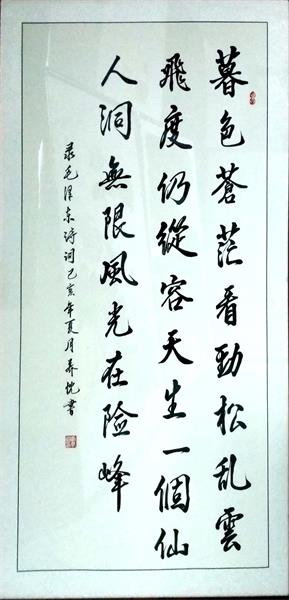 暮色蒼茫看勁松乱雲
飛度仍從容天生一個仙
人洞無限風光在险峰
录毛泽东诗词己亥年夏月